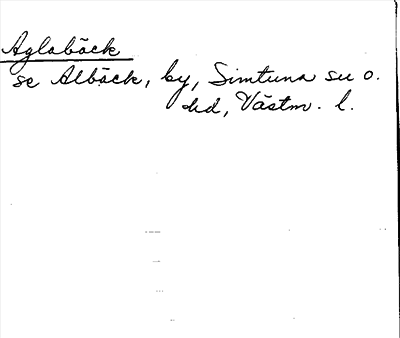 Aglabäck
se Albäck, by, Simtuna sn o.
hd, Västm. l.